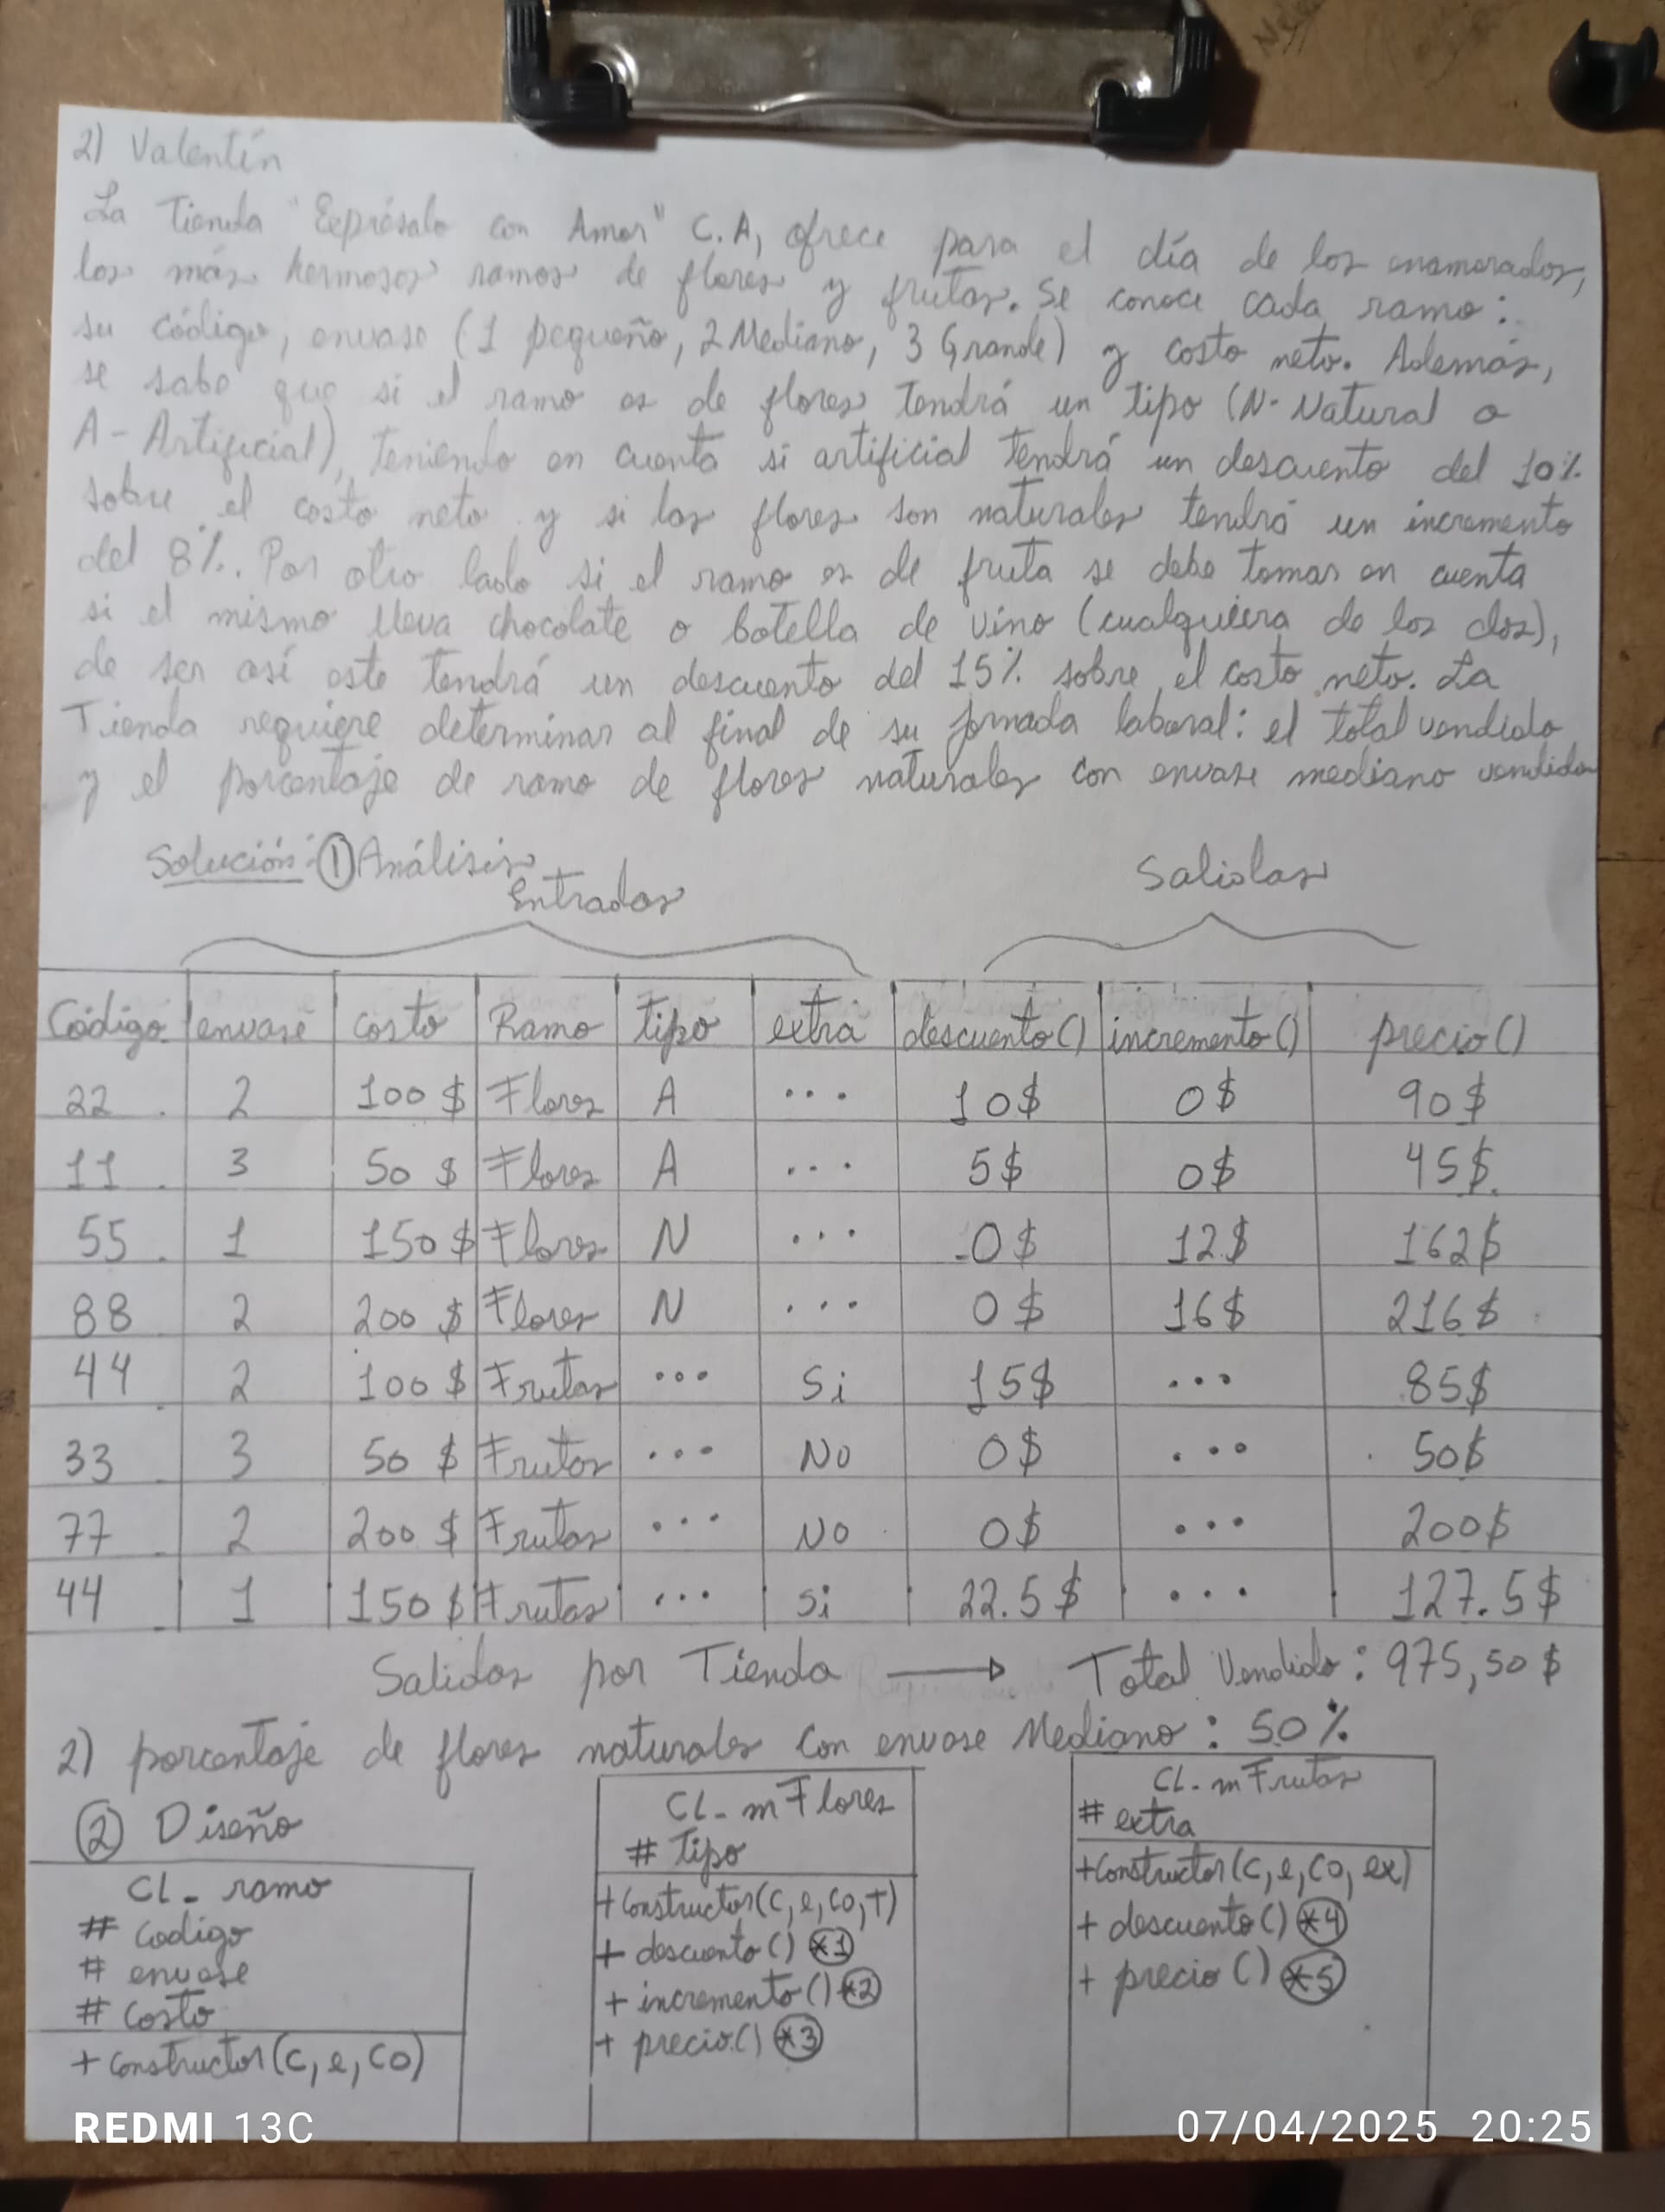 2) Valentín
La Tienda "Exprésalo con Amor" C.A, ofrece para el día de los enamorados,
los más hermosos ramos de flores y frutas. Se conoce cada ramo:
su código, envase (1 pequeño, 2 Mediano, 3 Grande) y costo neto. Además,
se sabe que si el ramo es de flores tendrá un tipo (N- Natural o
A- Artificial), teniendo en cuenta si artificial tendrá un descuento del 10%
sobre el costo neto y si las flores son naturales tendrá un incremento
del 8%. Por otro lado si el ramo es de fruta se debe tomar en cuenta
si el mismo lleva chocolate o botella de vino (cualquiera de los dos),
de ser así este tendrá un descuento del 15% sobre el costo neto. La
Tienda requiere determinar al final de su jornada laboral: el total vendido
y el porcentaje de ramo de flores naturales con envase mediano vendido
Solución: ① Análisis
Entradas Salidas
Código envase costo Ramo tipo extra descuento() incremento() precio()
22 2 100 $ Flores A ... 10$ 0$ 90$
11 3 50 $ Flores A ... 5$ 0$ 45$.
55 1 150 $ Flores N ... 0$ 12$ 162$
88 2 200 $ Flores N ... 0$ 16$ 216$
44 2 100 $ Frutas ... Si 15$ ... 85$
33 3 50 $ Frutas ... No 0$ ... 50$
77 2 200 $ Frutas ... No 0$ ... 200$
44 1 150 $ Frutas ... Si 22.5$ ... 127.5$
Salidas por Tienda → Total Vendido: 975,50 $
2) porcentaje de flores naturales con envase Mediano: 50%
② Diseño
CL_ ramo
# Codigo
# envase
# Costo
+ Constructor(C, e, CO)
CL_ mFlores
# Tipo
+ Constructor(C, e, CO, T)
+ descuento() *1
+ incremento() *2
+ precio() *3
CL_ mFrutas
# extra
+Constructor(C, e, CO, ex)
+ descuento() *4
+ precio() *5
REDMI 13C
07/04/2025 20:25